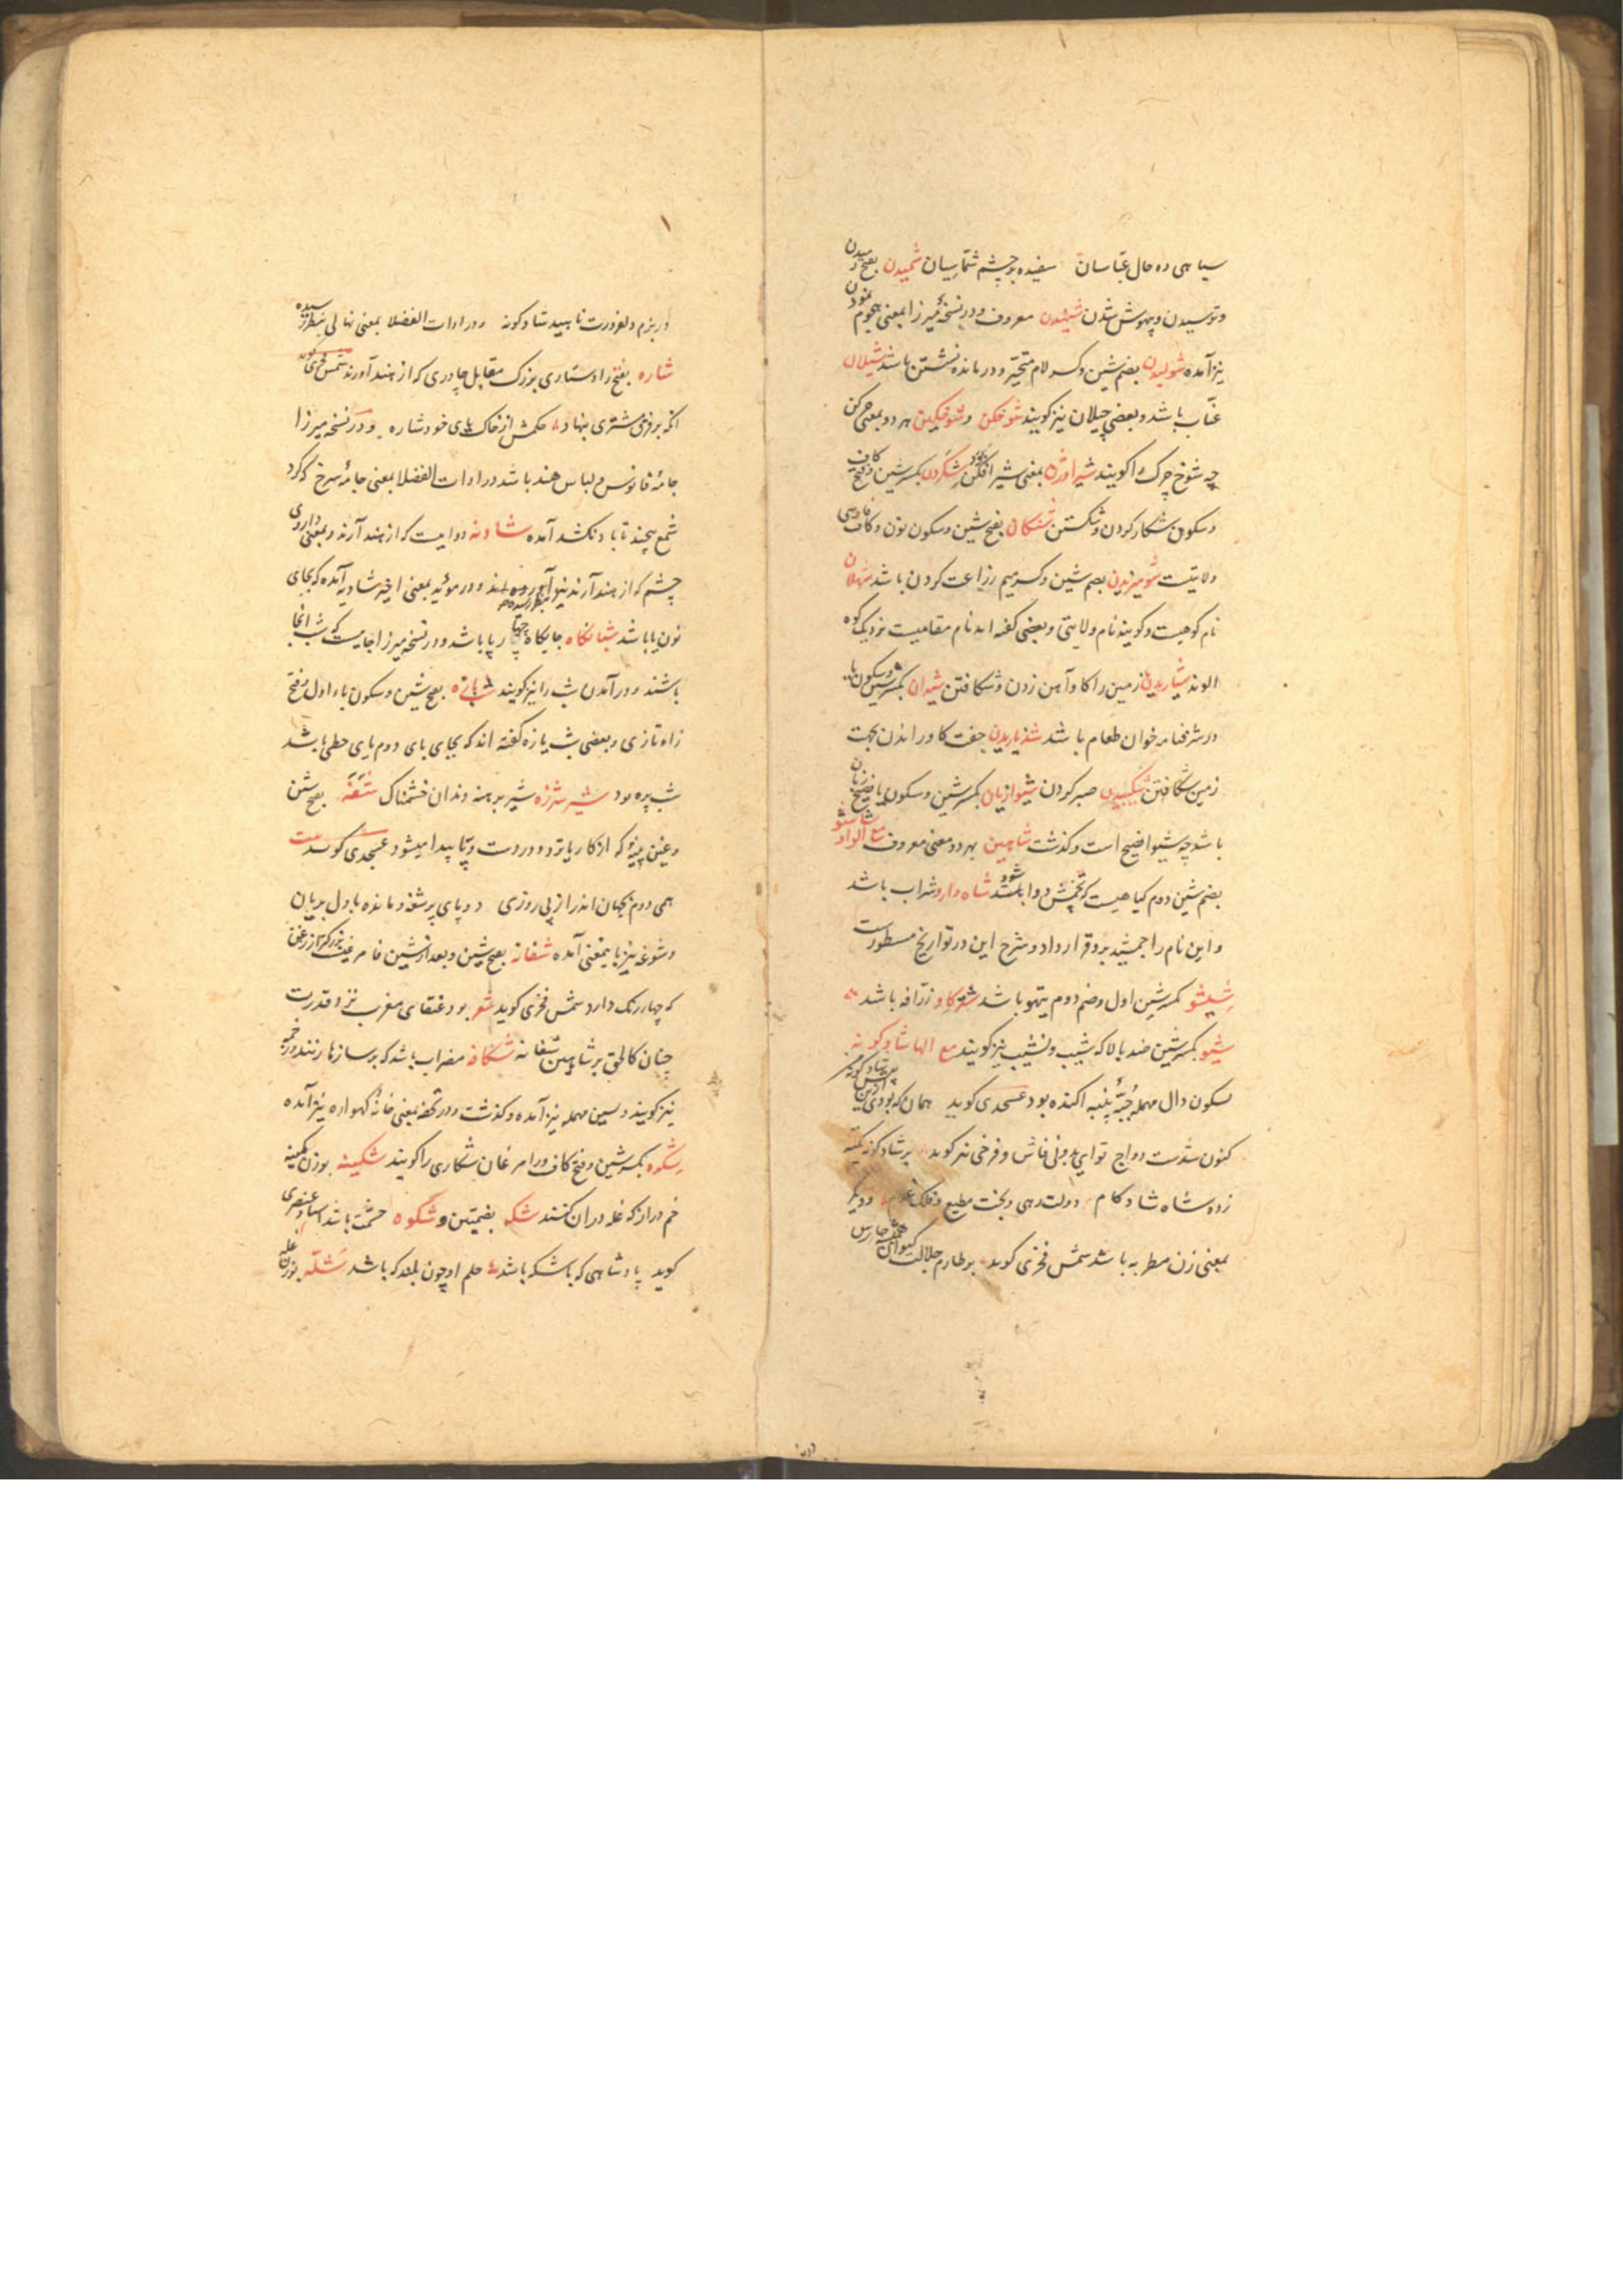 سیاهی ده حال عباسان سفیده بر چشم شماسیان شمیدن بفتح رمیدن
و ترسیدن و بیهوش شدن شنیدن معروف و در نسخهٔ میرزا بمعنی هجوم نمودن
نیز آمده شولیدن بضم شین و کسر لام متحیر و درمانده نشستن باشد شیلان
عناب باشد و بعضی چیلان نیز گویند شوخکن و شوخکین هر دو بمعنی چرکن
چه شوخ چرک را گویند شیر اوژن بمعنی شیر افکن شکردن بکسر شین و فتح کاف
و سکون شکار کردن و شکستن شنکان بفتح شین و سکون نون و کاف فارسی
ولایتیست شومیزیدن بضم شین و کسر میم زراعت کردن باشد شهلان
نام کوهیست و گویند نام ولایتی و بعضی گفته اند نام مقامیست نزدیک کوه
الوند شیاریدن زمین را کاو آهن زدن و شکافتن شیدان بکسر شین و سکون یا
در شرفنامه خوان طعام باشد شدیاریدن جفت کاو راندن بجهت
زمین شکافتن شکیبیدن صبر کردن شیوازبان بکسر شین و سکون یا فصیح زبان
باشد چه شیوا فصیح است و کذشت شاهین بهر دو معنی معروف مع الواو شاشو
بضم شین دوم کیاهیست که تخمش دوا باشد شاه دارو شراب باشد
و این نام را جمشید برو قرار داد و شرح این در تواریخ مسطورست
شیشو بکسر شین اول و ضم دوم تیهو باشد شترکاو زرافه باشد
شیو بکسر شین ضد بالا که شیب و نشیب نیز گویند مع الها شادکونه
بسکون دال مهمله جبهٔ پنبه اکنده بود عسجدی گوید همان که بودی
کنون شدست دواج تو ای بدولی فاش و فرخی نیز گوید بر شادکونه تکیه
زده شاه شادکام دولت رهی و بخت مطیع و فلک غلام و دیگر
بمعنی زن مطربه باشد شمس فخری گوید بر طارم جلالت کیوان همیشه حارس
در بزم دلفروزت ناهید شادکونه و در ادات الفضلا بمعنی نهالی بنظر رسیده
شاره بفتح را دستاری بزرگ مقابل چادری که از هند آورند شمس فخری گوید
انکه بر فرق مشتری بنهاد حکمش از خاک پای خود شاره و در نسخه میرزا
جامهٔ فانوس و لباس هند باشد و در ادات الفضلا بمعنی جامهٔ سرخ که گرد
شمع پیچند تا باد نکشد آمده شادنه دواییست که از هند آرند و بمعنی داروی
چشم که از هند آرند نیز و در موید بمعنی اخیر شادیه آمده که بجای
نون یا باشد شبانکاه جایگاه چهارپا باشد و در نسخه میرزا جاییست که شب انجا
باشند و در آمدن شب را نیز گویند شبازه بفتح شین و سکون باء اول و فتح
زاء تازی و بعضی شب یازه گفته اند که بجای بای دوم یای حطی باشد
شب پره بود شیر شرزه شیر برهنه دندان خشمناک شغه بفتح شین
و غین پینهٔ که از کار یا تردد در دست و پا پیدا میشود عسجدی گوید بیت
همی دوم بجهان اندر از پی روزی دو پای پر شغه و مانده با دل بریان
و شوغه نیز باینمعنی آمده شفانه بفتح شین و بعد از شین فا مرغیست بزرگتر از زغن
که چهار رنگ دارد شمس فخری گوید شعر بود عنقای مغرب نزد قدرت
چنان کالحق بر شاهین شفانه شکافه مضراب باشد که بر سازها زنند و زخمه
نیز گویند و بسین مهمله نیز آمده و کذشت و در تحفه بمعنی خانه گهواره نیز آمده
شکره بکسر شین و فتح کاف و را مرغان شکاری را گویند شکینه بوزن کمینه
خم دراز که غله در ان کنند شکه بضمتین و شکوه حشمت باشد استاد عنصری
گوید پادشاهی که باشکه باشد حلم او چون بلند که باشد شکله بوزن عله